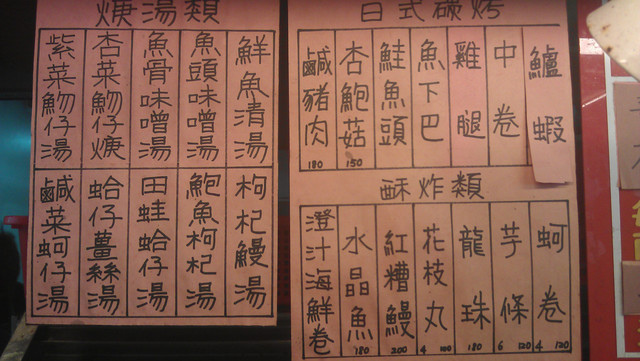 日式碳烤
鱸蝦
中卷
雞腿
魚下巴
鮭魚頭
杏鮑菇 150
鹹豬肉 180
酥炸類
蚵卷 4 120
芋條 6 120
龍珠 180
花枝丸 4
紅糟鰻 200
水晶魚 180
澄汁海鮮卷
焿湯類
鮮魚清湯
魚頭味噌湯
魚骨味噌湯
杏菜魩仔焿
紫菜魩仔湯
枸杞鰻湯
鮑魚枸杞湯
田蛙蛤仔湯
蛤仔薑絲湯
鹹菜蚵仔湯